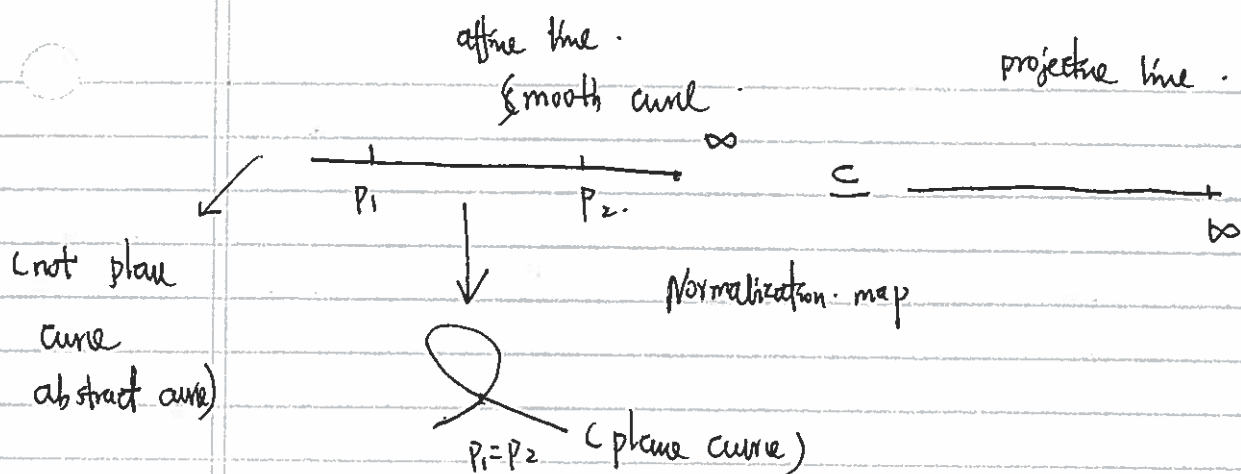 affine line.
smooth curve.
projective line.
∞
P₁
P₂.
⊆
∞
(not plane
curve
abstract curve)
Normalization map
P₁=P₂ (plane curve)